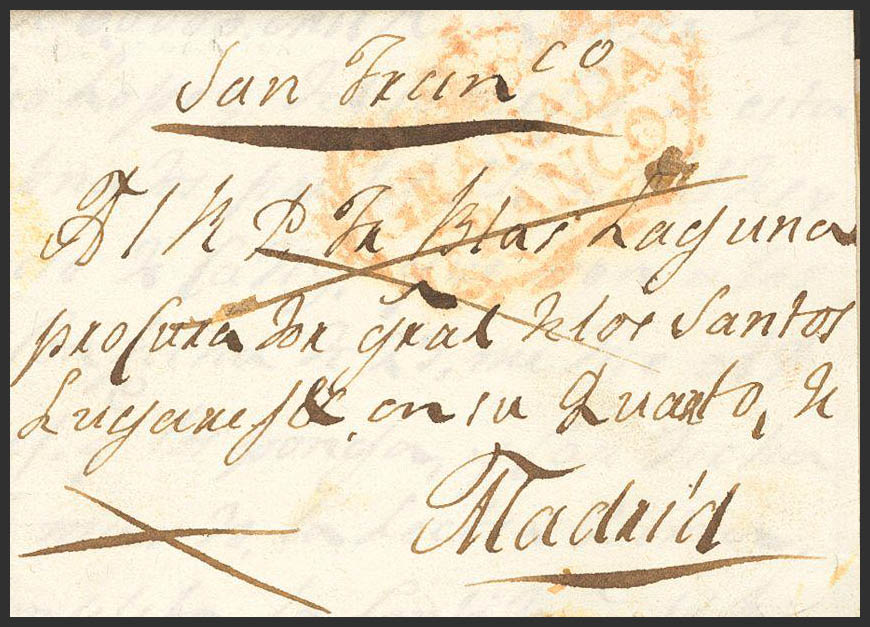 San Fran^co
GRANADA
FRANCO
Al R P. Fr Blas Laguna
procurador gral de los Santos
Lugares &c, en su Quarto, de
Madrid